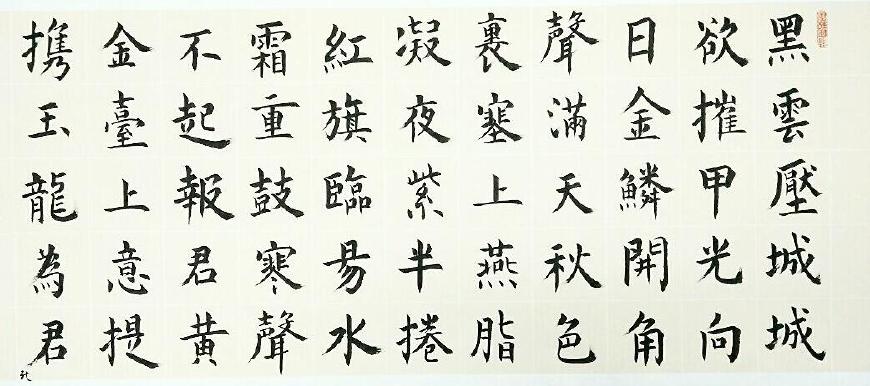 黑雲壓城城
欲摧甲光向
日金鱗開角
聲滿天秋色
裏塞上燕脂
凝夜紫半捲
紅旗臨易水
霜重鼓寒聲
不起報君黃
金臺上意提
携玉龍為君
死